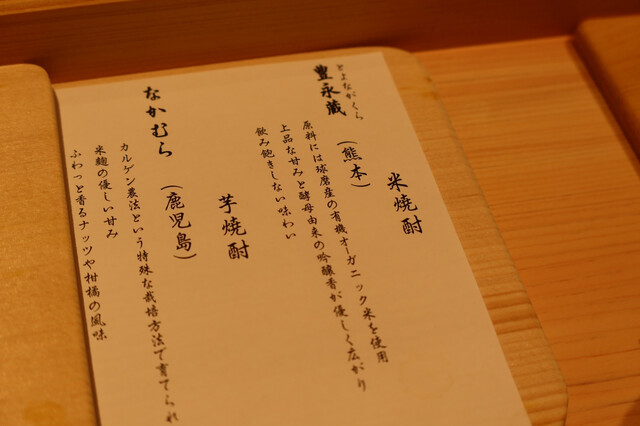 米焼酎
とよながくら
豊永蔵
(熊本)
原料には球磨産の有機オーガニック米を使用
上品な甘みと酵母由来の吟醸香が優しく広がり
飲み飽きしない味わい
芋焼酎
なかむら
(鹿児島)
カルゲン農法という特殊な栽培方法で育てられ
米麹の優しい甘み
ふわっと香るナッツや柑橘の風味